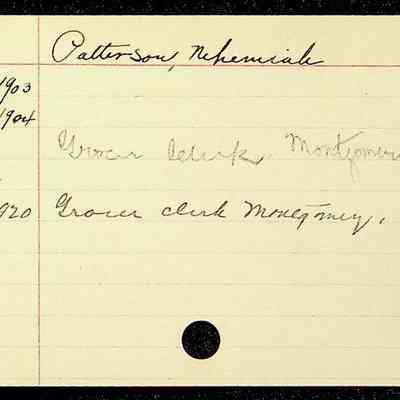 Patterson, Nehemiah
1903
1904
Grocer Clerk. Montgomery
1920 Grocer clerk Montgomery.